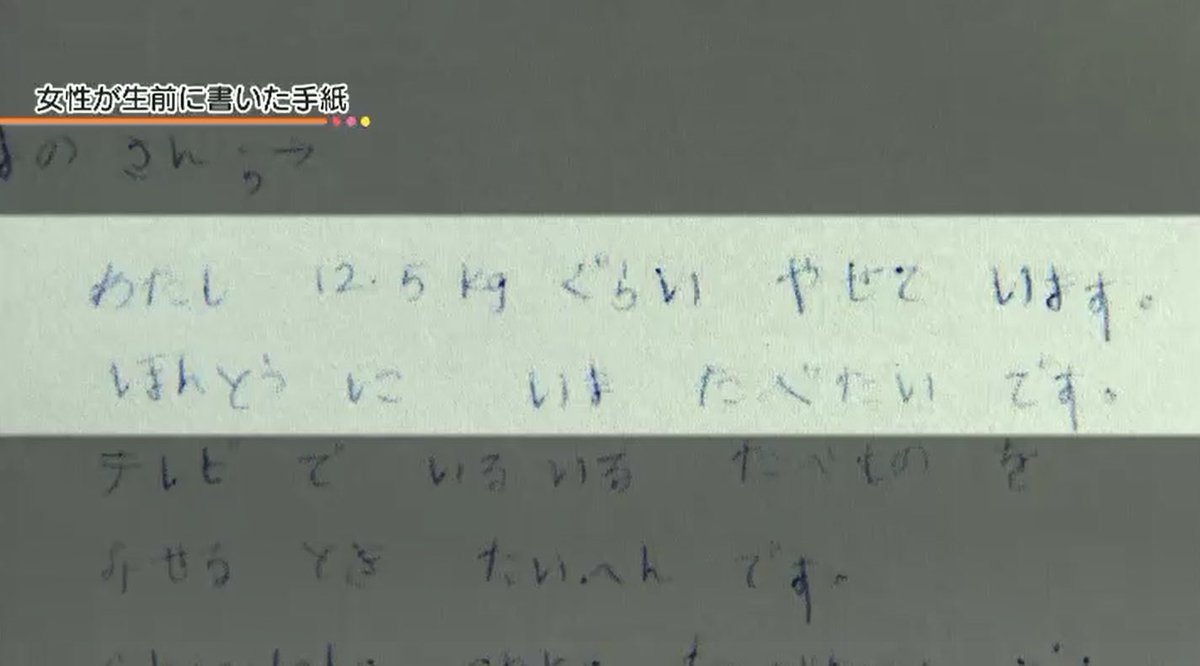 女性が生前に書いた手紙
のさん
わたし 12.5kg ぐらい やせて います。
ほんとうに いま たべたい です。
テレビ で いるいる たべもの を
みせる とき たいへん です。